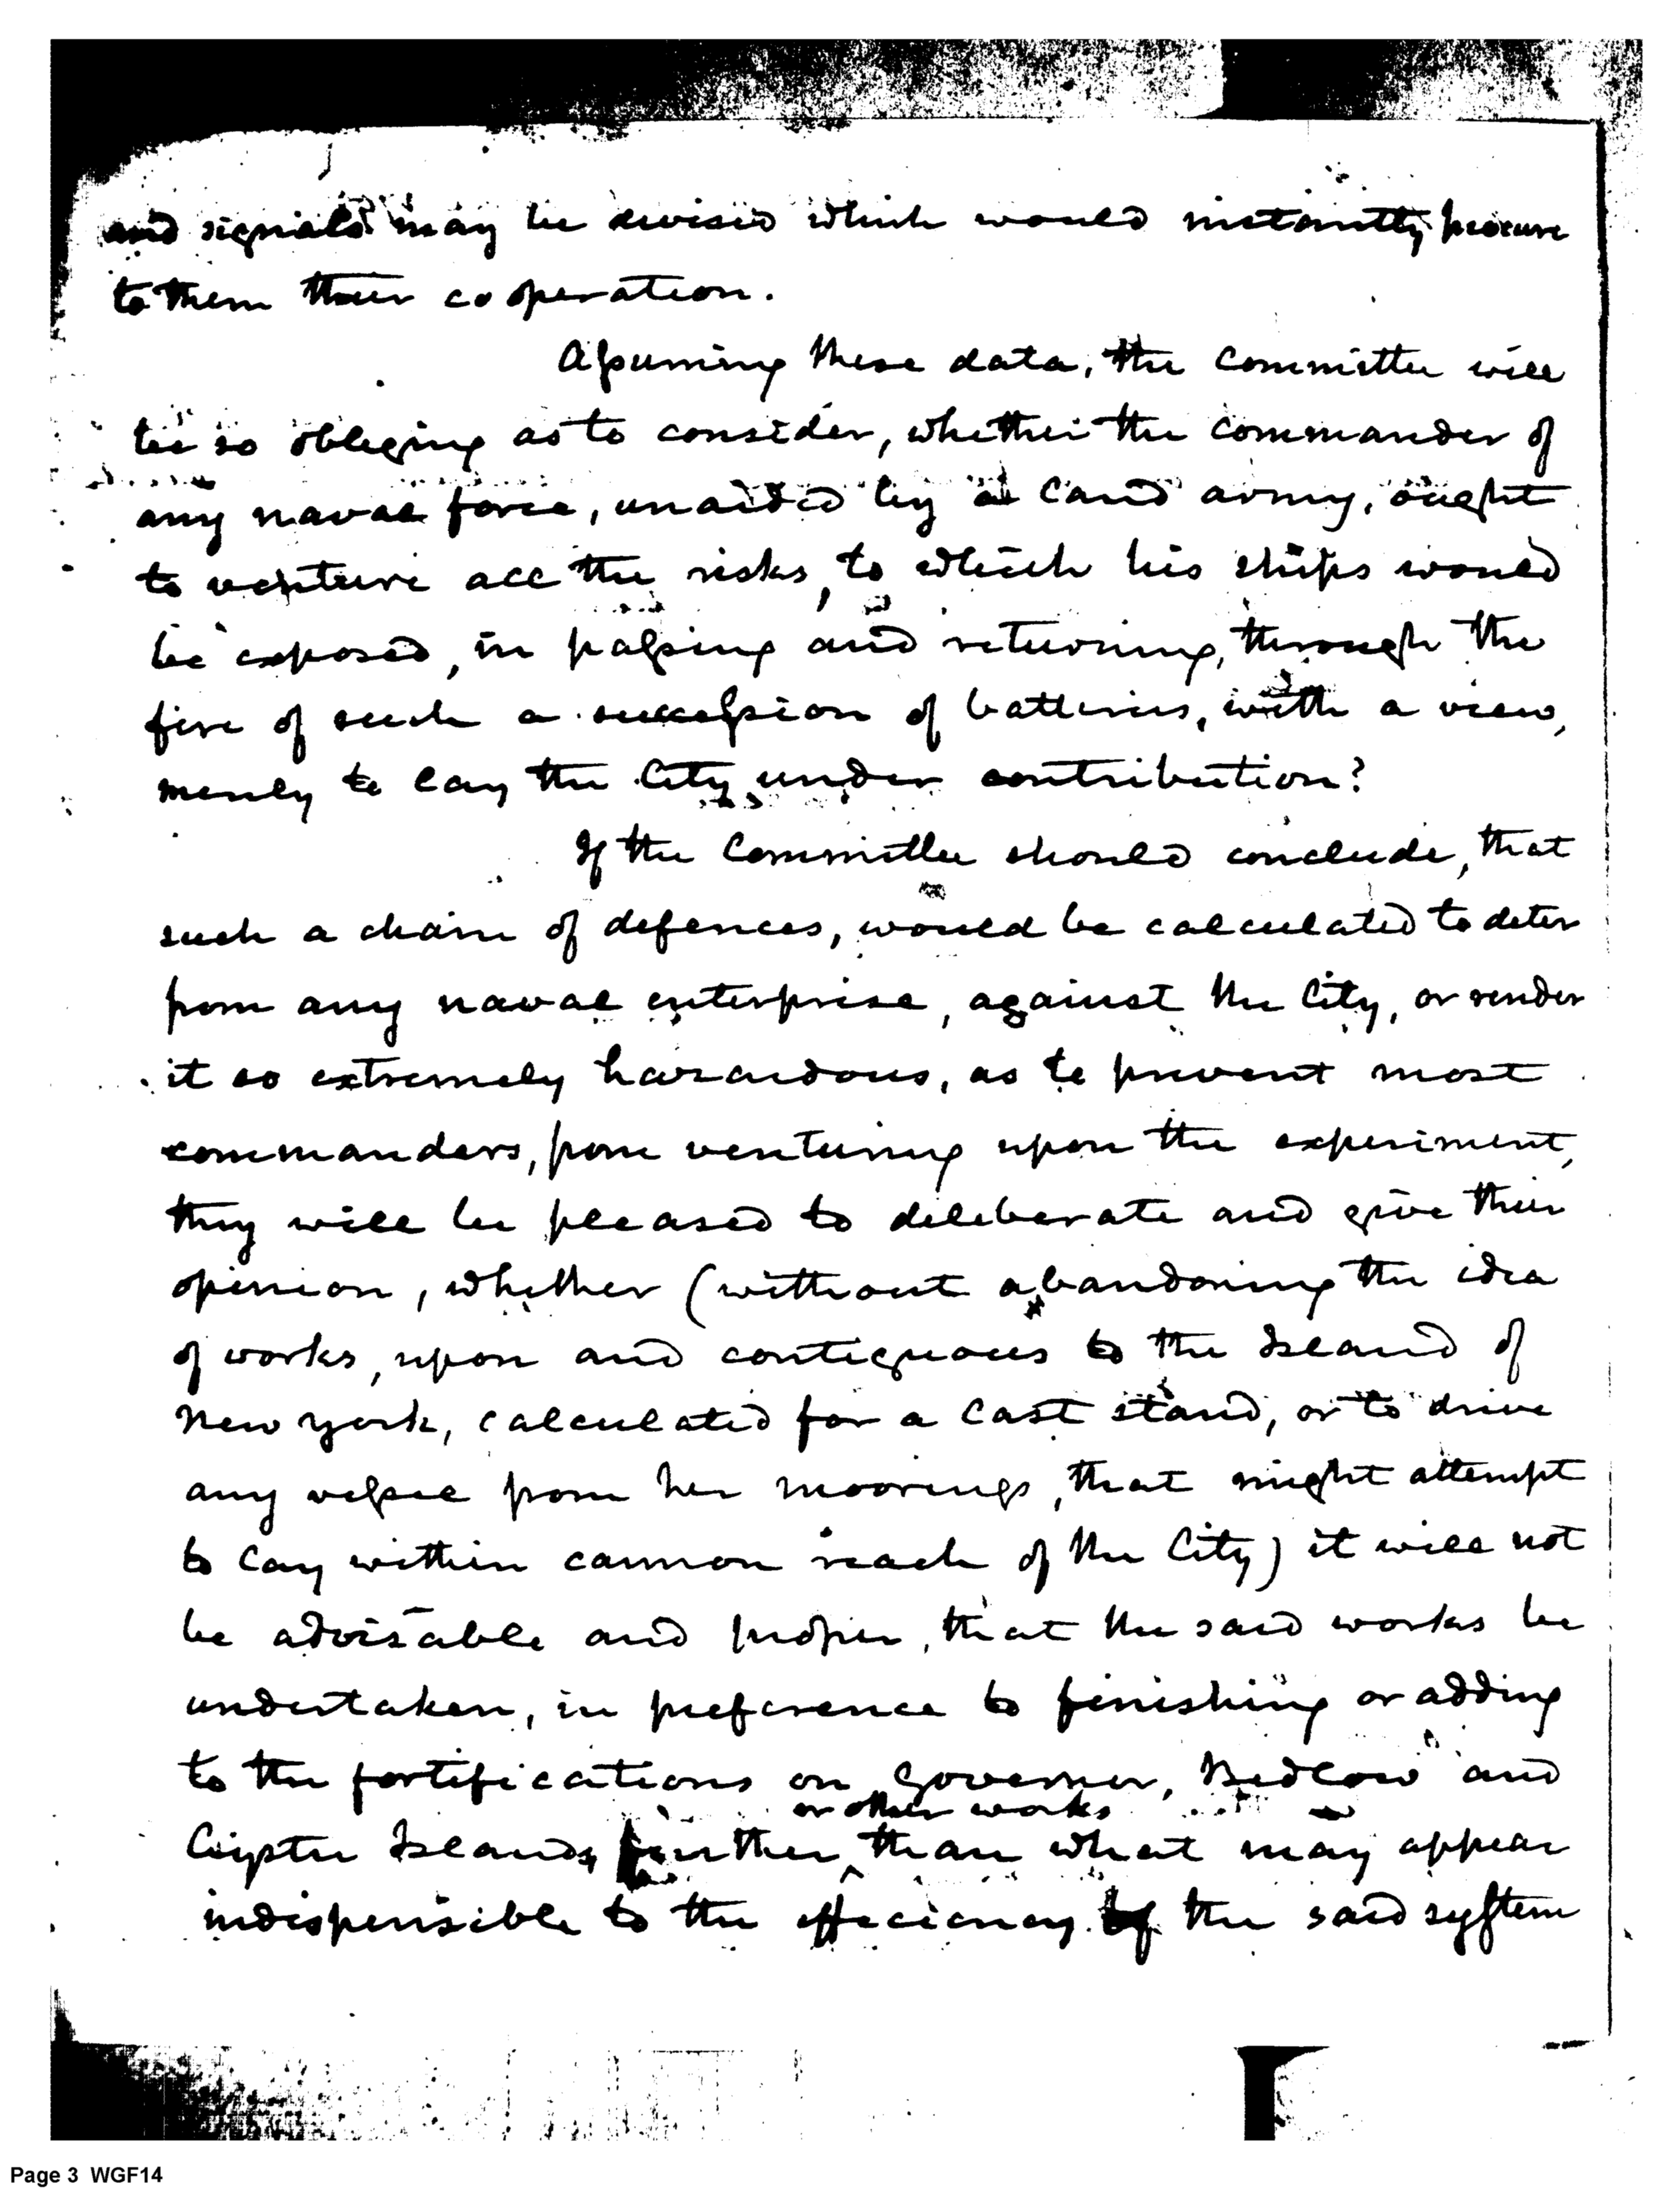 and signals may be devised which would instantly procure
to them their cooperation.
Assuming these data, the Committee will
be so obliging as to consider, whether the commander of
any naval force, unaided by a land army, ought
to venture all the risks, to which his ships would
be exposed, in passing and returning, through the
fire of such a succession of batteries, with a view,
merely to lay the City under contribution?
If the Committee should conclude, that
such a chain of defences, would be calculated to deter
from any naval enterprise, against the City, or render
it so extremely hazardous, as to prevent most
commanders, from venturing upon the experiment,
they will be pleased to deliberate and give their
opinion, whether (without abandoning the idea
of works, upon and contiguous to the Island of
New York, calculated for a last stand, or to drive
any vessel from her moorings, that might attempt
to lay within cannon reach of the City) it will not
be advisable and proper, that the said works be
undertaken, in preference to finishing or adding
to the fortifications on Governer, Bedlow and
or other works
Oyster Islands further than what may appear
indispensible to the efficiency of the said system
Page 3 WGF14